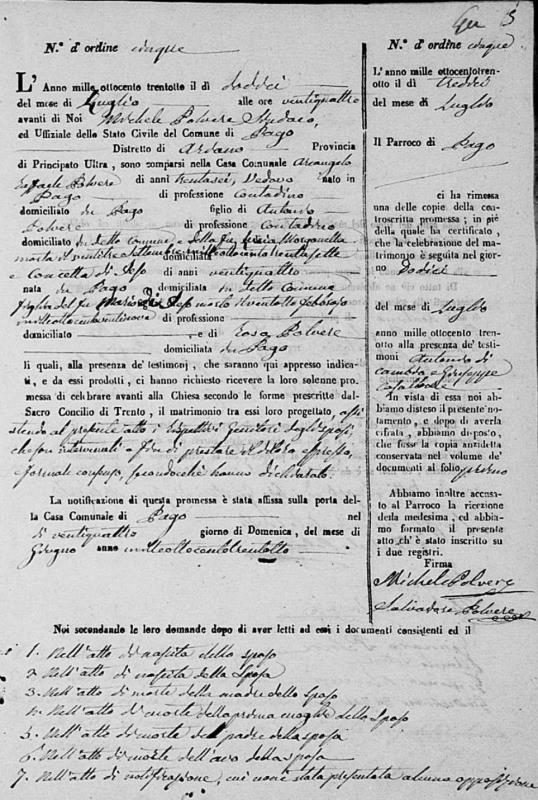 5
N.° d'ordine cinque
L'Anno mille ottocento trentotto il dì dodici
del mese di Luglio alle ore ventiquattro
avanti di Noi Michele Polvere Sindaco,
ed Uffiziale dello Stato Civile del Comune di Pago
Distretto di Provincia
di Principato Ultra, sono comparsi nella Casa Comunale Arcangelo
Raffaele Polvere di anni trentasei, Vedovo nato in
Pago di professione Contadino
domiciliato in Pago figlio di Antonio
Polvere di professione Contadino
domiciliato in detto comune, e della fu Morganella
morta il ventitre Settembre mille ottocento trentasette
e Concetta di di anni ventiquattro
nata in Pago domiciliata in detto Comune
figlia del fu Mario di morto il ventotto febbrajo
milleottocento ventinove di professione
domiciliato e di Rosa Polvere
domiciliata in Pago
li quali, alla presenza de' testimonj, che saranno quì appresso indica-
ti, e da essi prodotti, ci hanno richiesto ricevere la loro solenne pro-
messa di celebrare avanti alla Chiesa secondo le forme prescritte dal-
Sacro Concilio di Trento, il matrimonio tra essi loro progettato, assi
stendo al presente atto i rispettivi Genitori degli sposi,
che sono intervenuti a fin di prestare il di loro espresso,
e formale consenso, secondochè hanno dichiarato.
La notificazione di questa promessa è stata affissa sulla porta del-
la Casa Comunale di Pago nel
dì ventiquattro giorno di Domenica, del mese di
Giugno anno milleottocentotrentotto
Noi secondando le loro domande dopo di aver letti ad essi i documenti consistenti ed il
1. Nell'atto di nascita dello sposo
2. Nell'atto di nascita della Sposa
3. Nell'atto di morte della madre dello Sposo
4. Nell'atto di morte della prima moglie dello Sposo
5. Nell'atto di morte del padre della sposa
6. Nell'atto di morte dell'avo della sposa
7. Nell'atto di notificazione, cui non è stata presentata alcuna opposizione
N.° d'ordine cinque
L'anno mille ottocentotren-
totto il dì tredici
del mese di Luglio
Il Parroco di Pago
ci ha rimessa
una delle copie della con-
troscritta promessa; in piè
della quale ha certificato,
che la celebrazione del ma-
trimonio è seguita nel gior-
no Dodici
del mese di Luglio
anno mille ottocento tren-
totto alla presenza de' testi-
monj Antonio di
e Giuseppe
Catalano
In vista di essa noi ab-
biamo disteso il presente no-
tamento, e dopo di averla
cifrata, abbiamo disposto,
che fosse la copia anzidetta
conservata nel volume de'
documenti al folio primo
Abbiamo inoltre accusa-
to al Parroco la ricezione
della medesima, ed ab-
biamo formato il presente
atto, ch'è stato inscritto su
i due registri.
Firma
Michele Polvere
Salvadore Polvere